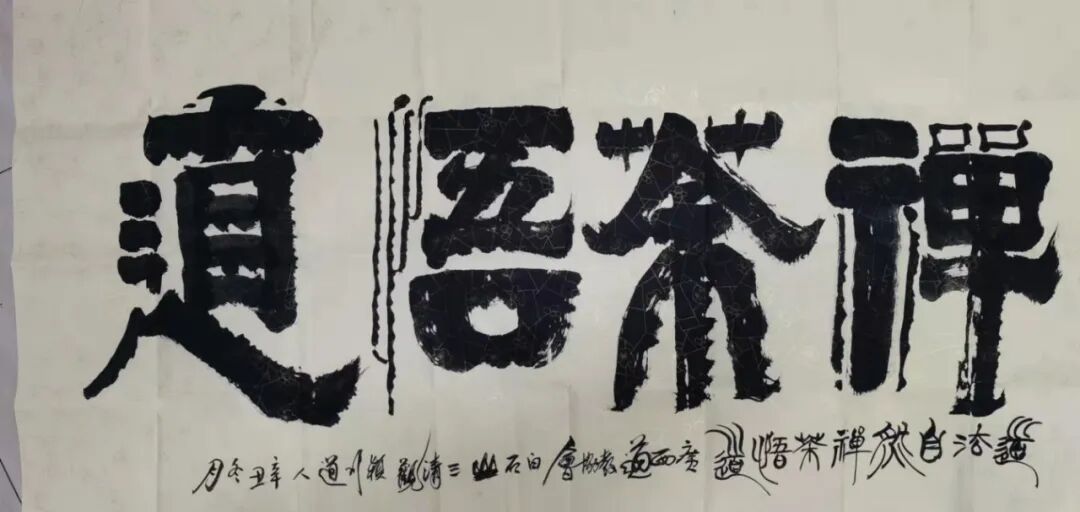 禪茶悟道
道法自然禪茶悟道廣西道教協會白石山三清觀穎川道人辛丑冬月